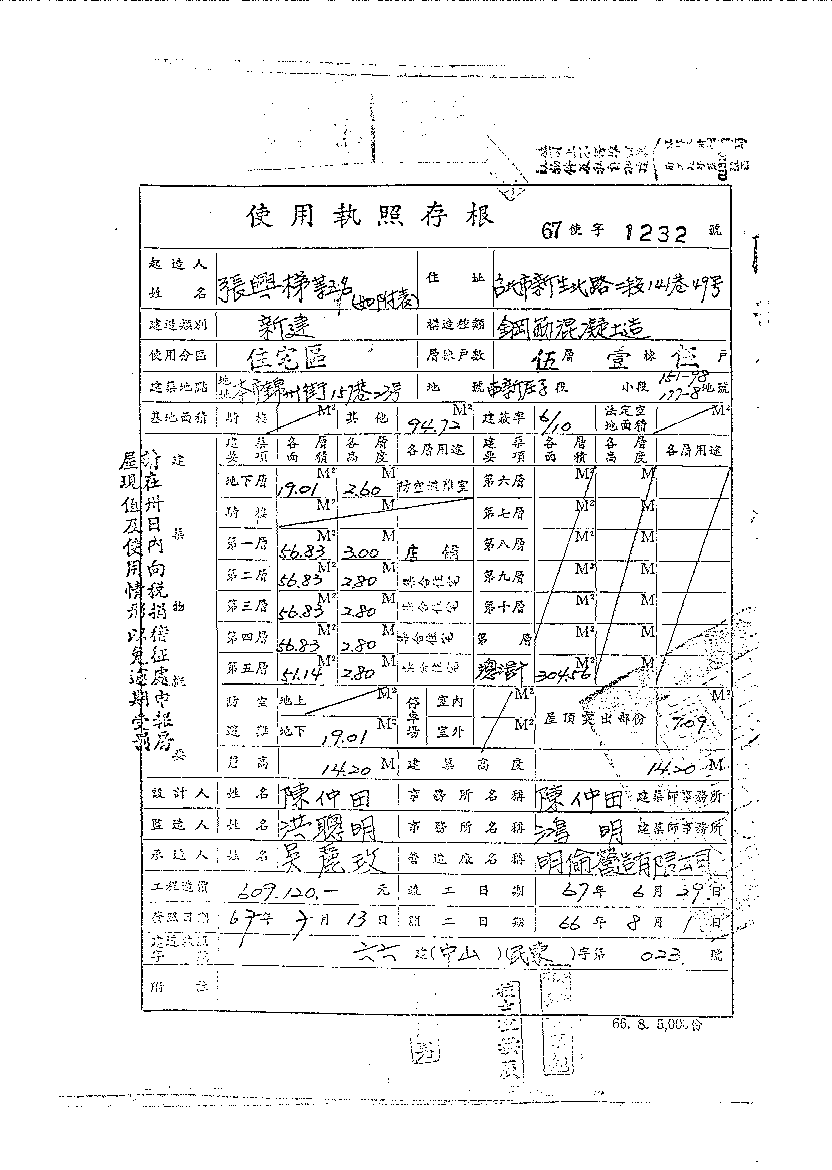 使用執照存根
67使字1232號
起造人姓名 張興梯等五名(如附表) 住址 台北市新生北路二段141巷49號
建造類別 新建 構造種類 鋼筋混凝土造
使用分區 住宅區 層棟戶數 伍層 壹棟 伍戶
建築地點 地址 本市錦州街157巷23號 地號 段 小段 151-98 177-8 地號
基地面積 騎樓 M² 其他 94.72 M² 建蔽率 6/10 法定空地面積 M²
建築要項 各層面積 各層高度 各層用途 建築要項 各層面積 各層高度 各層用途
地下層 19.01 M² 2.60 M 防空避難室 第六層 M² M
騎樓 M² M 第七層 M² M
第一層 56.83 M² 3.00 M 店舖 第八層 M² M
第二層 56.83 M² 2.80 M 第九層 M² M
第三層 56.83 M² 2.80 M 第十層 M² M
第四層 56.83 M² 2.80 M 第 層 M² M
第五層 51.14 M² 2.80 M 總計 304.56 M² M
防空避難 地上 M² 停車場 室內 M² 屋頂突出部份 7.09 M²
地下 19.01 M² 室外 M²
簷高 14.20 M 建築高度 14.20 M
設計人 姓名 陳仲田 事務所名稱 陳仲田 建築師事務所
監造人 姓名 洪聰明 事務所名稱 鴻明 建築師事務所
承造人 姓名 吳麗玫 營造廠名稱 明倫營造有限公司
工程造價 609,120.- 元 竣工日期 67年6月29日
發照日期 67年7月13日 開工日期 66年8月1日
建造執照字號 六六建(中山)(民東)字第023號
附註
建築物概要
請在卅日內向稅捐稽征處申報房
屋現值及使用情形以免逾期受罰
66. 8. 5,000份